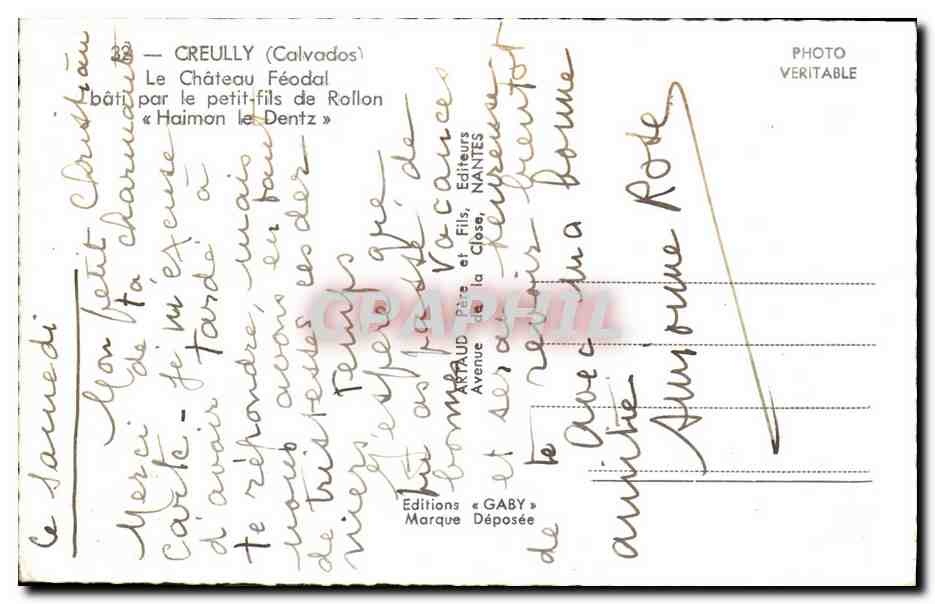 32 — CREULLY (Calvados)
Le Château Féodal
bâti par le petit-fils de Rollon
« Haimon le Dentz »
PHOTO
VERITABLE
ARTAUD Père et Fils, Editeurs
Avenue de la Close, NANTES
Editions « GABY »
Marque Déposée
CPAPHIL
Ce Samedi
Mon petit Christian
Merci de ta charmante
carte - je m'excuse
d'avoir tardé à
te répondre, mais
nous avons eu tant
de tristesses ces der
niers temps
J'espère que
tu as passé de
bonnes vacances
et serai heureuse
de te revoir bientôt
Avec ma bonne
amitié
Rose